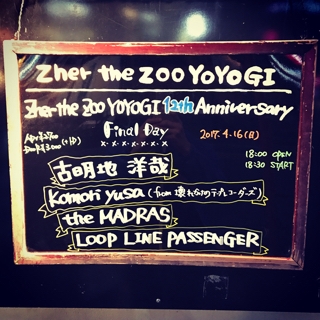 Zher the ZOO YOYOGI
Zher the ZOO YOYOGI 12th Anniversary
Final Day
2017.4.16(日)
18:00 OPEN
18:30 START
古明地 洋哉
Komori yusa (from 壊れかけのテープレコーダーズ)
the MADRAS
LOOP LINE PASSENGER